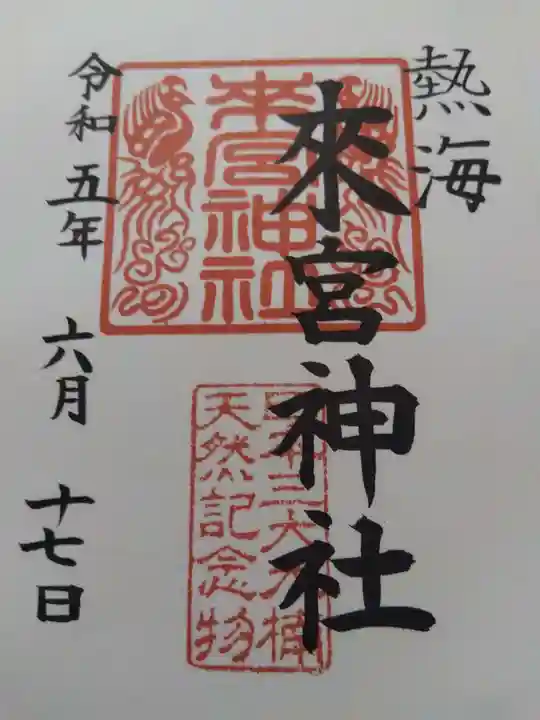 熱海
來宮神社
來宮神社
日本三大大楠
天然記念物
令和五年
六月
十七日